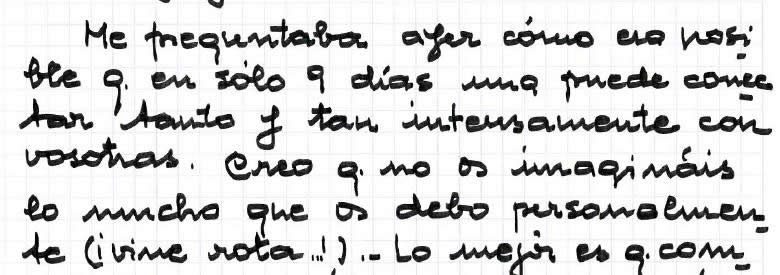 Me preguntaba ayer cómo era posi
ble q. en sólo 9 días una puede conec
tar tanto y tan intensamente con
vosotras. Creo q. no os imagináis
lo mucho que os debo personalmen_
te (¡vine rota..!).- Lo mejor es q. com_